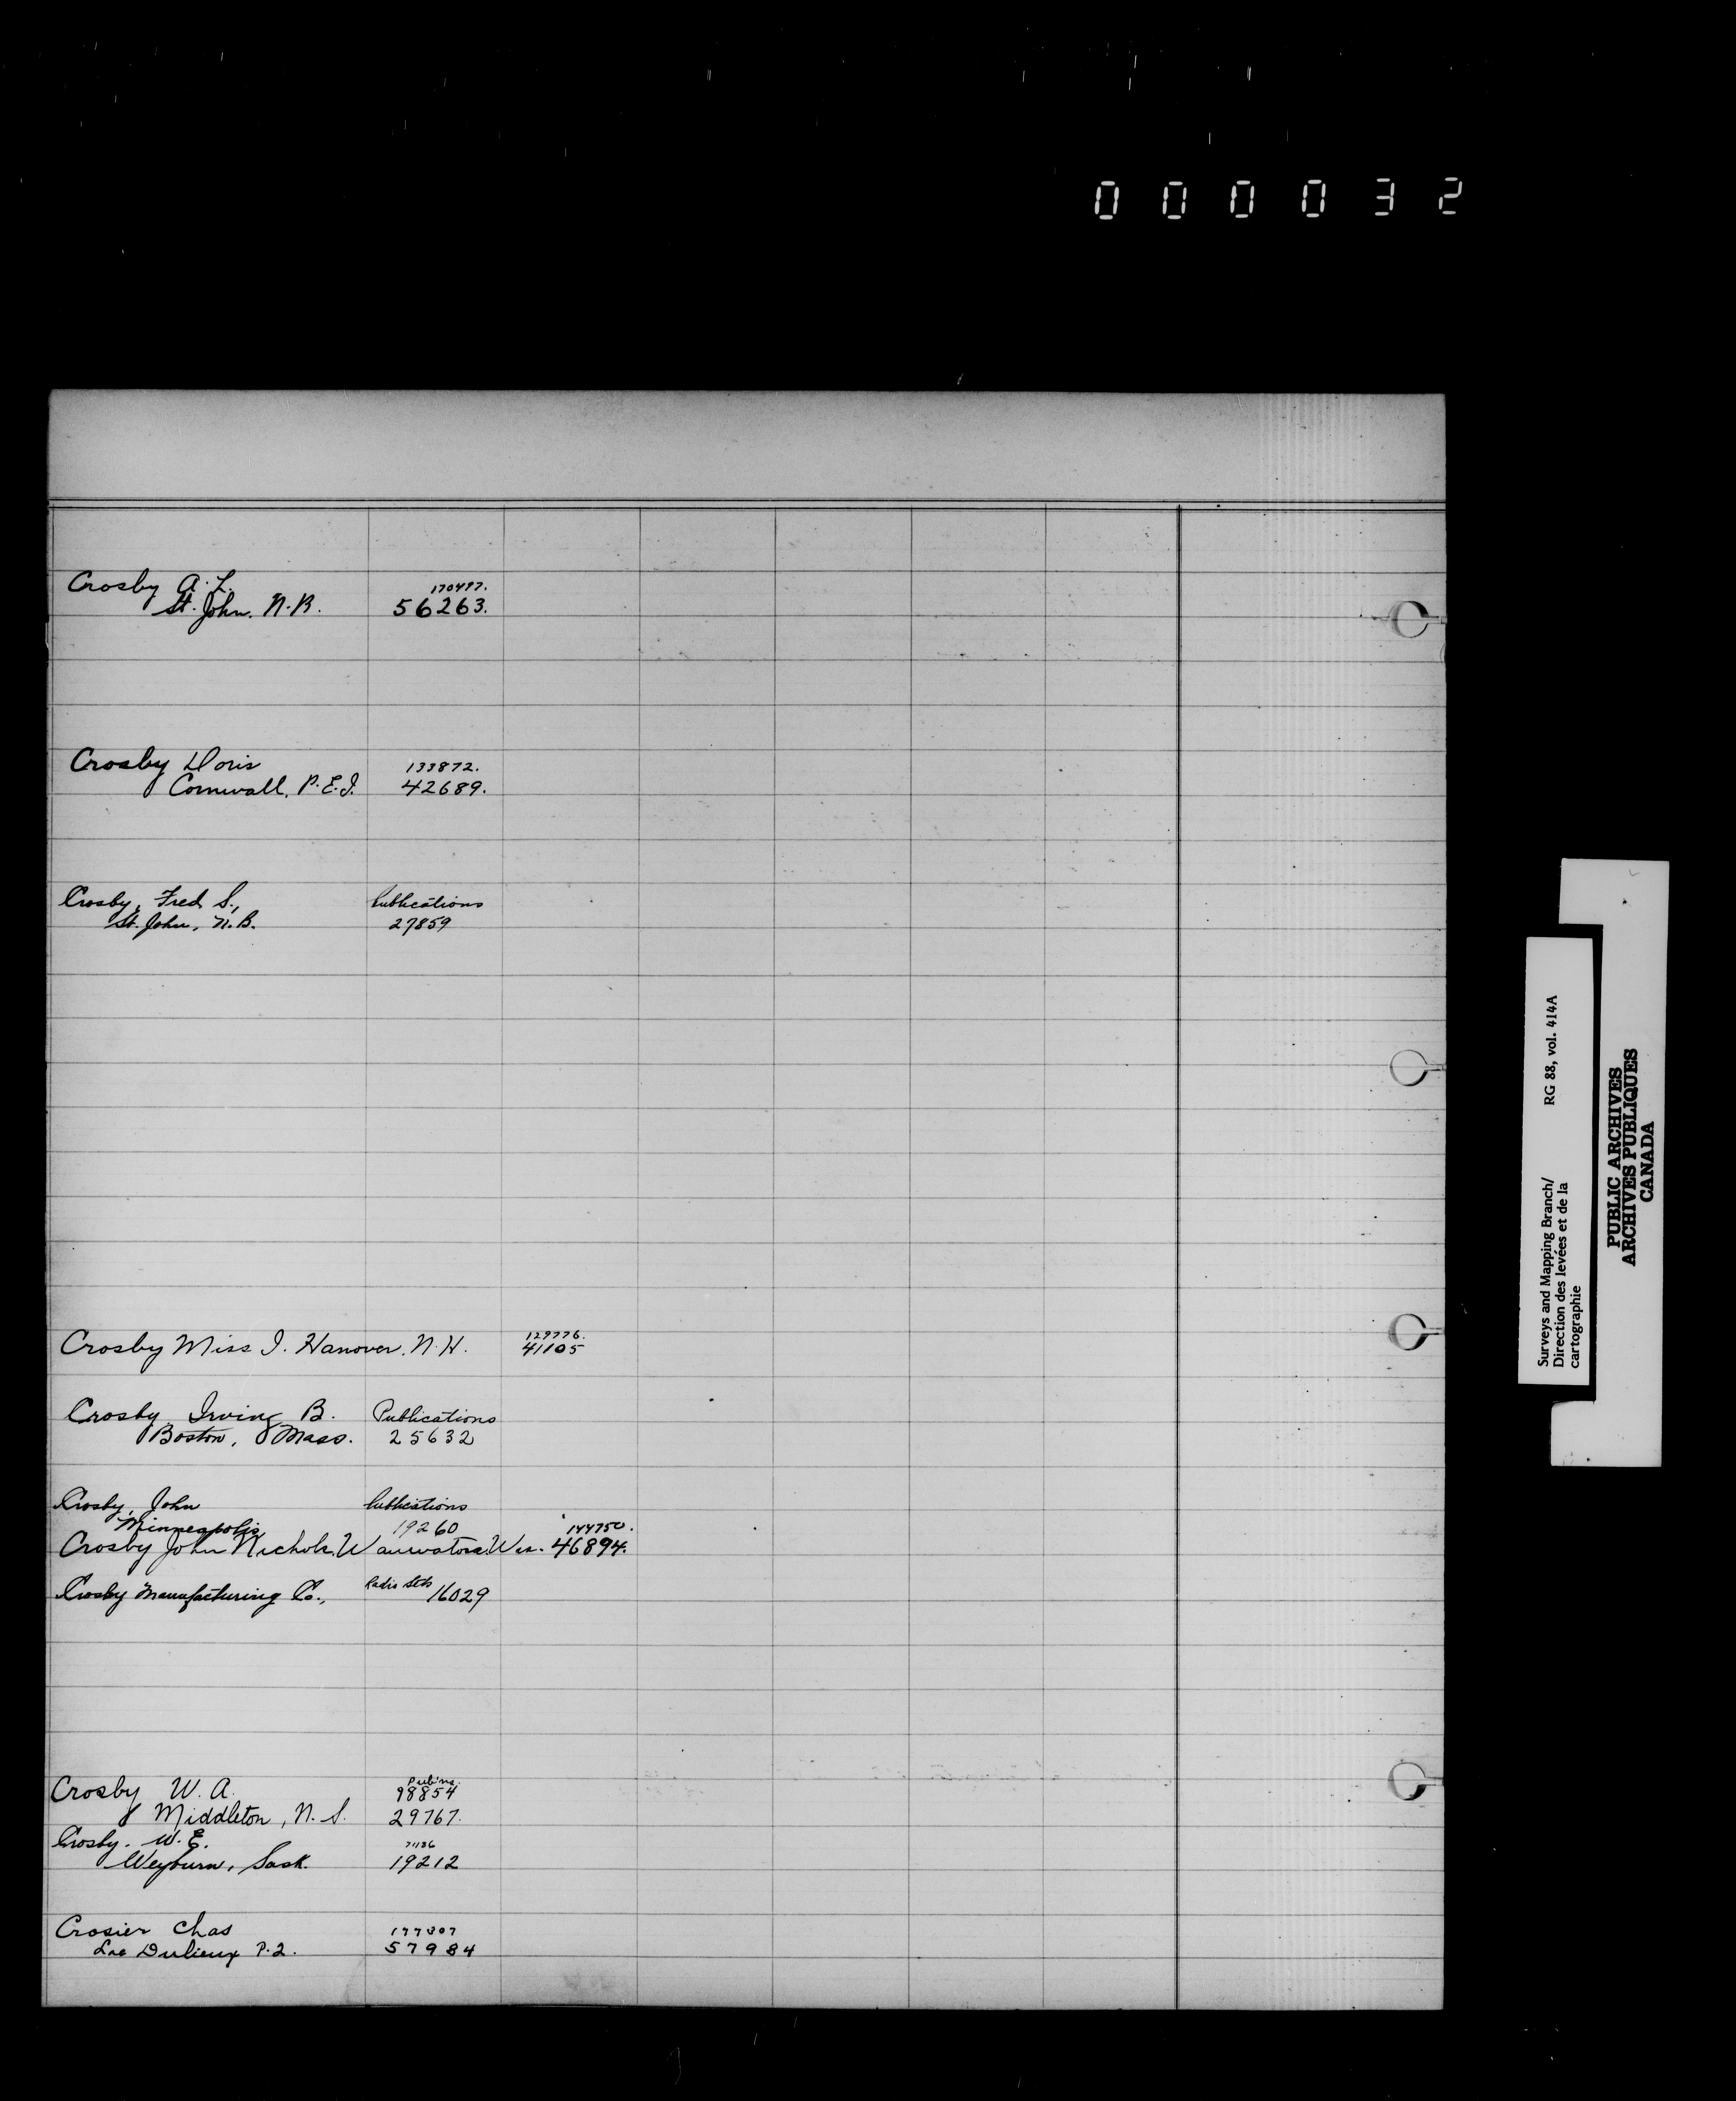 000032
Crosby A. L. 170497.
St. John. N.B. 56263.
Crosby Doris 133872.
Cornwall. P.E.I. 42689.
Crosby, Fred S., Publications
St. John, N.B. 27859
Crosby Miss I. Hanover. N.H. 129776.
41105
Crosby Irving B. Publications
Boston, Mass. 25632
Crosby, John Publications
Minneapolis 19260 144750.
Crosby John Nichols. Wauwatosa. Wis. 46894.
Crosby Manufacturing Co., Radio Sets 16029
Pub'ns.
Crosby W. A. 98854
Middleton, N.S. 29767.
Crosby. W.E. 71136
Weyburn, Sask. 19212
Crosier Chas 177307
Lac Dulieux P.2. 57984
Surveys and Mapping Branch/ RG 88, vol. 414A
Direction des levées et de la
cartographie
PUBLIC ARCHIVES
ARCHIVES PUBLIQUES
CANADA